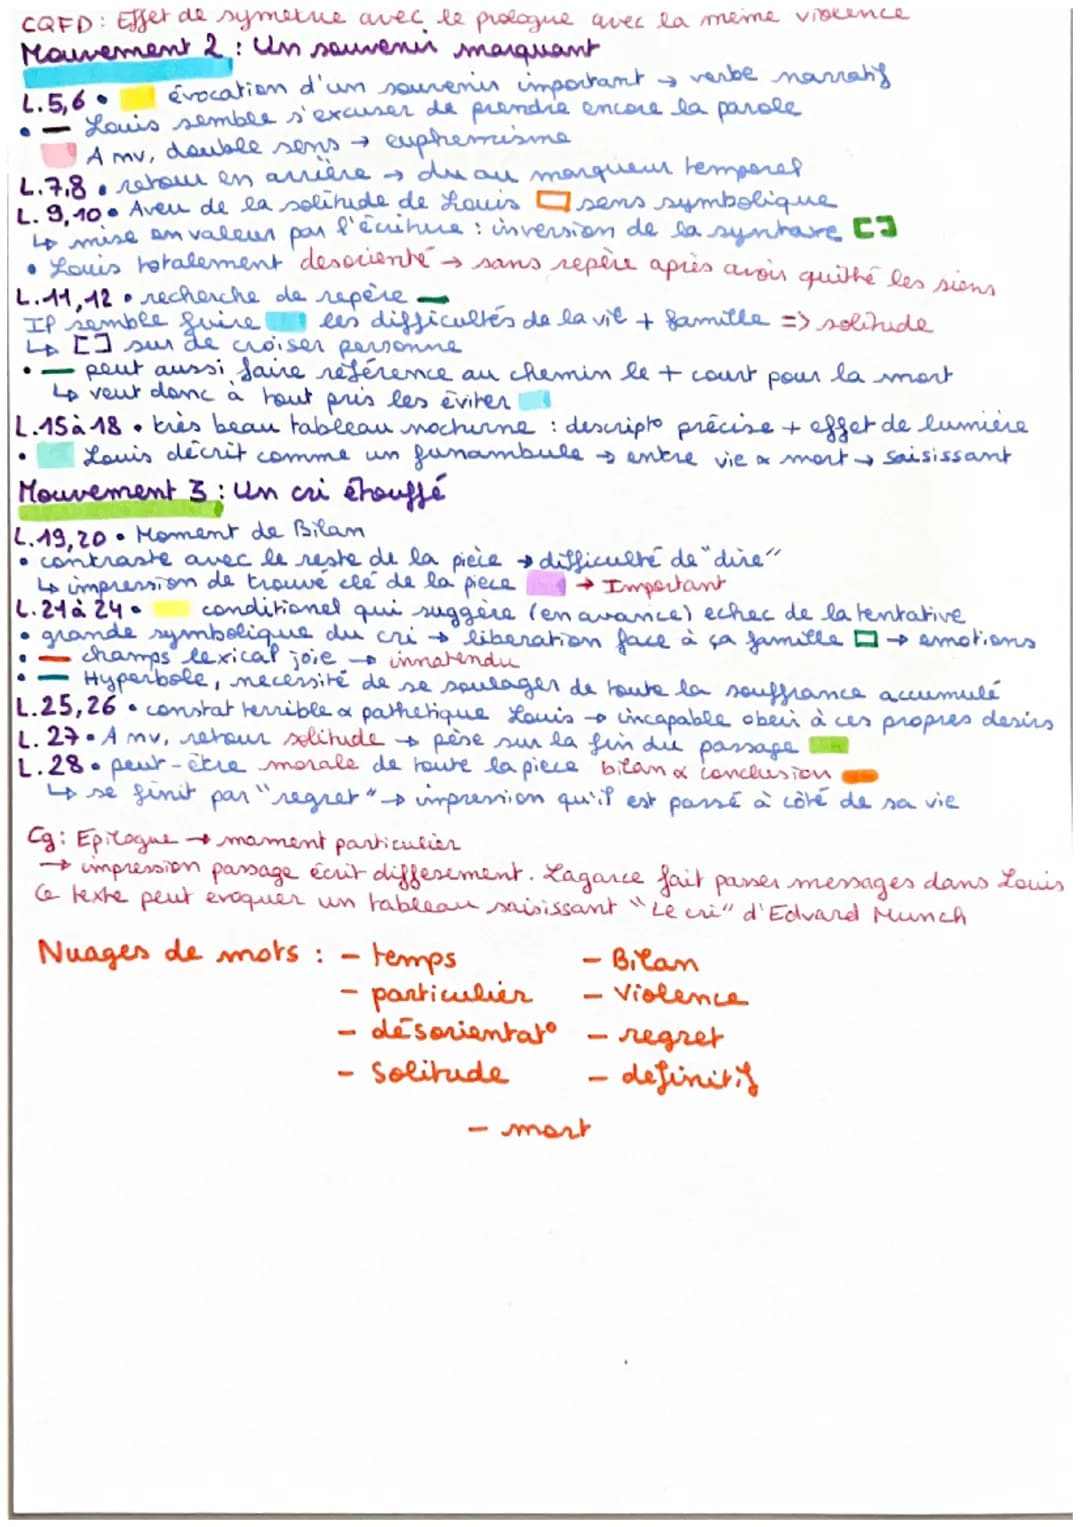 CQFD : Effet de symetrie avec le prologue avec la meme violence
Mouvement 2 : Un souvenir marquant
L.5,6 • évocation d'un souvenir important → verbe narratif
• — Louis semble s'excuser de prendre encore la parole
A mv, double sens → euphemisme
L.7,8 • retour en arrière → du au marqueur temporel
L.9,10 • Aveu de la solitude de Louis sens symbolique
↳ mise en valeur par l'écriture : inversion de la syntaxe []
• Louis totalement desorienté → sans repère après avoir quitté les siens
L.11,12 • recherche de repère —
Il semble fuire les difficultés de la vie + famille => solitude
↳ [] sur de croiser personne
• — peut aussi faire référence au chemin le + court pour la mort
↳ veut donc à tout pris les éviter
L.15 à 18 • très beau tableau nocturne : descript° précise + effet de lumière
• Louis décrit comme un funambule → entre vie & mort → saisissant
Mouvement 3 : Un cri étouffé
L.19,20 • Moment de Bilan
• contraste avec le reste de la pièce → difficulté de "dire"
↳ impression de trouvé clé de la piece → Important
L.21 à 24 • conditionel qui suggère (en avance) echec de la tentative
• grande symbolique du cri → liberation face à sa famille → emotions
• — champs lexical joie → innatendu
• — Hyperbole, necessité de se soulager de toute la souffrance accumulé
L.25,26 • constat terrible & pathetique Louis → incapable obeir à ces propres desirs
L.27 • A mv, retour solitude → pèse sur la fin du passage
L.28 • peut-être morale de toute la piece bilan & conclusion
↳ se finit par "regret" → impression qu'il est passé à côté de sa vie
Cg : Epilogue → moment particulier
→ impression passage écrit differement. Lagarce fait passer messages dans Louis
Ce texte peut evoquer un tableau saisissant "Le cri" d'Edvard Munch
Nuages de mots : - temps - Bilan
- particulier - Violence
- désorientat° - regret
- Solitude - definitif
- mort